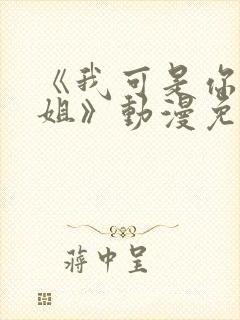 《我可是你
姐》動漫免
蔣中呈